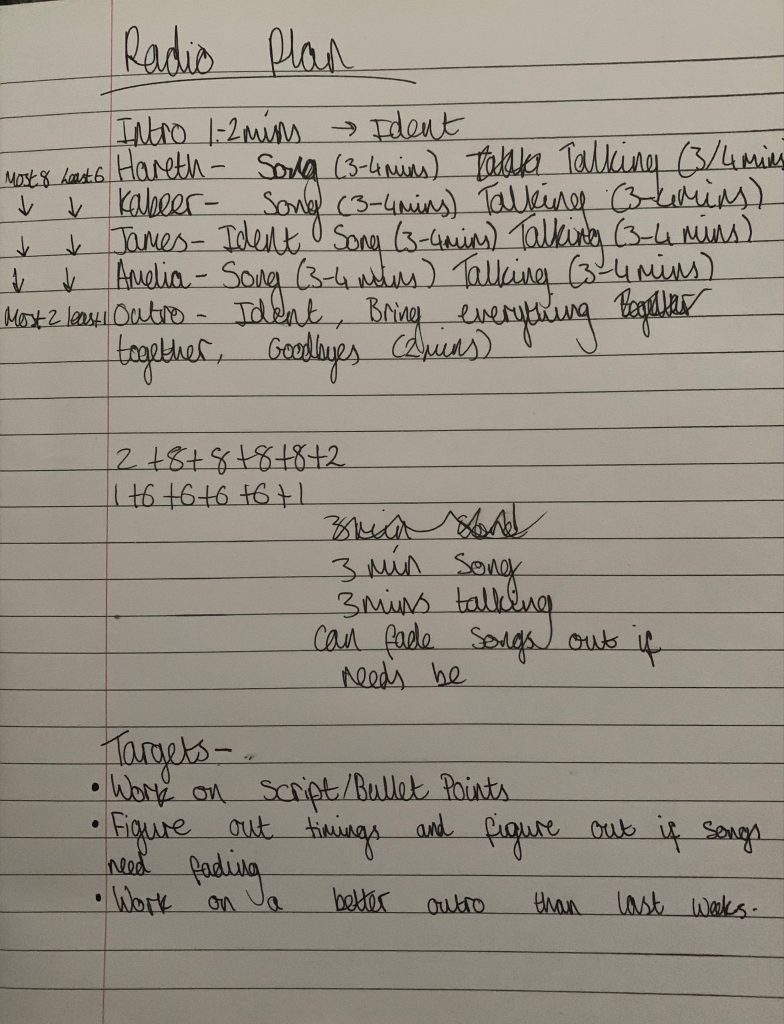 Radio Plan
Intro 1-2mins → Ident
Most 8 least 6 Hareth - Song (3-4mins) Talking (3/4mins
↓ ↓ Kabeer - Song (3-4mins) Talking (3-4mins)
↓ ↓ James - Ident Song (3-4mins) Talking (3-4 mins)
↓ ↓ Amelia - Song (3-4 mins) Talking (3-4mins)
Most 2 least 1 Outro - Ident, Bring everything
together, Goodbyes (2mins)
2 +8+8+8+8+2
1+6+6+6+6+1
3 min song
3mins talking
can fade songs out if
needs be
Targets -
• Work on Script/Bullet Points
• Figure out timings and figure out if songs
need fading
• Work on a better outro than last weeks.